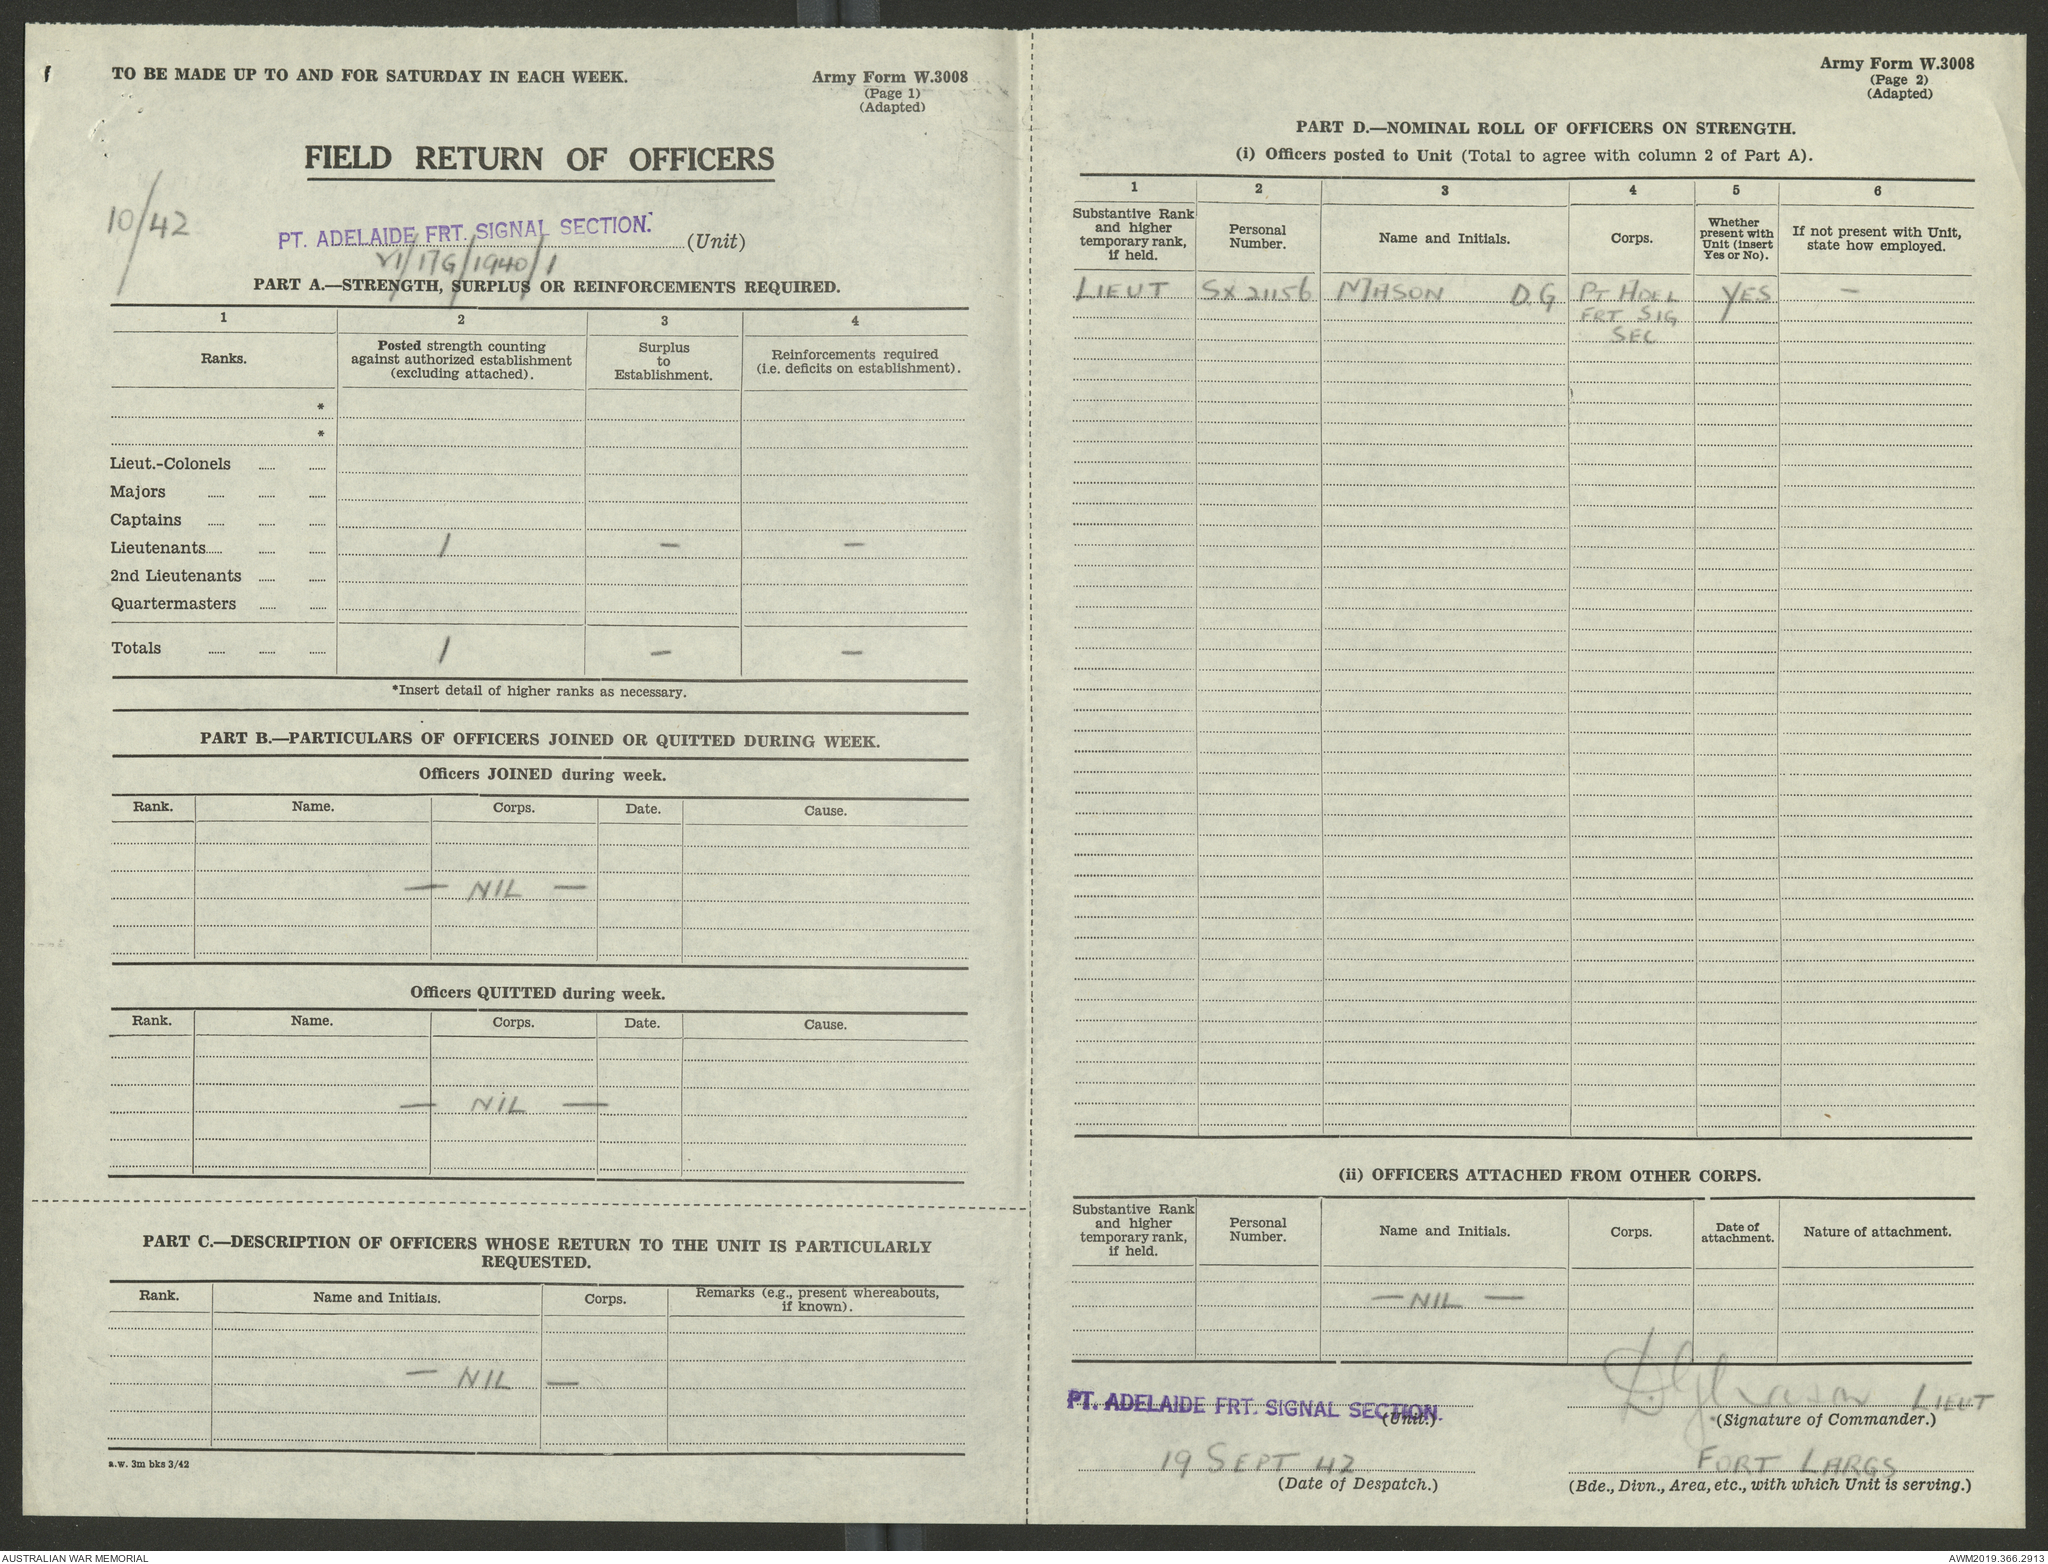 TO BE MADE UP TO AND FOR SATURDAY IN EACH WEEK.
Army Form W.3008
(Page 1)
(Adapted)
FIELD RETURN OF OFFICERS
10/42
PT. ADELAIDE FRT. SIGNAL SECTION. (Unit)
VI/17G/1940/1
PART A.—STRENGTH, SURPLUS OR REINFORCEMENTS REQUIRED.
1 2 3 4
Ranks.
Posted strength counting
against authorized establishment
(excluding attached).
Surplus
to
Establishment.
Reinforcements required
(i.e. deficits on establishment).
*
*
Lieut.-Colonels
Majors
Captains
Lieutenants 1 — —
2nd Lieutenants
Quartermasters
Totals 1 — —
*Insert detail of higher ranks as necessary.
PART B.—PARTICULARS OF OFFICERS JOINED OR QUITTED DURING WEEK.
Officers JOINED during week.
Rank. Name. Corps. Date. Cause.
— NIL —
Officers QUITTED during week.
Rank. Name. Corps. Date. Cause.
— NIL —
PART C.—DESCRIPTION OF OFFICERS WHOSE RETURN TO THE UNIT IS PARTICULARLY
REQUESTED.
Rank. Name and Initials. Corps.
Remarks (e.g., present whereabouts,
if known).
— NIL —
a.w. 3m bks 3/42
Army Form W.3008
(Page 2)
(Adapted)
PART D.—NOMINAL ROLL OF OFFICERS ON STRENGTH.
(i) Officers posted to Unit (Total to agree with column 2 of Part A).
1 2 3 4 5 6
Substantive Rank
and higher
temporary rank,
if held.
Personal
Number.
Name and Initials.
Corps.
Whether
present with
Unit (insert
Yes or No).
If not present with Unit,
state how employed.
LIEUT SX21156 MASON D.G PT ADEL YES —
FRT SIG
SEC
(ii) OFFICERS ATTACHED FROM OTHER CORPS.
Substantive Rank
and higher
temporary rank,
if held.
Personal
Number.
Name and Initials.
Corps.
Date of
attachment.
Nature of attachment.
— NIL —
PT. ADELAIDE FRT. SIGNAL SECTION.
(Unit.)
D.G. Mason LIEUT
(Signature of Commander.)
19 SEPT 42
(Date of Despatch.)
FORT LARGS
(Bde., Divn., Area, etc., with which Unit is serving.)
AUSTRALIAN WAR MEMORIAL
AWM2019.366.2913